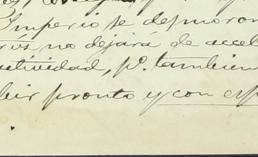 Imperio se desmoron
no dejará de acel
tividad, pº. tambien
bir pronto y con esp